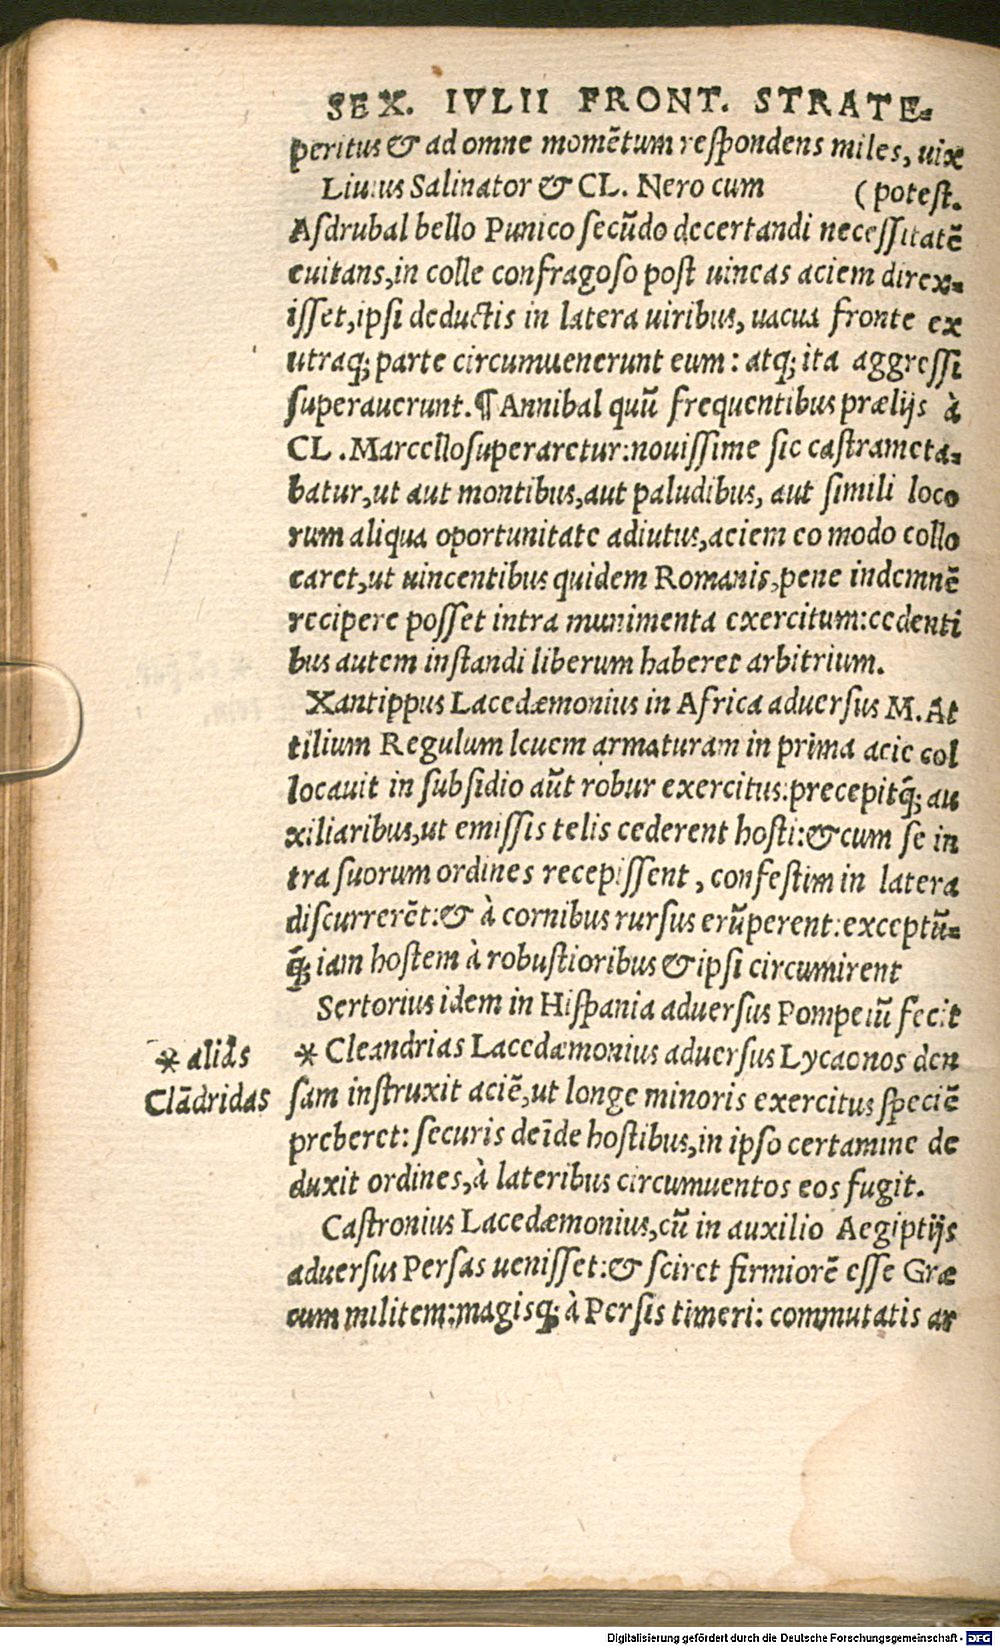 SEX. IVLII FRONT. STRATE-
peritus & ad omne momẽtum respondens miles, uix
Liuius Salinator & CL. Nero cum (potest.
Asdrubal bello Punico secũdo decertandi necessitatẽ
euitans, in colle confragoso post uineas aciem direx-
isset, ipsi deductis in latera uiribus, uacua fronte ex
utraq; parte circumuenerunt eum: atq; ita aggressi
superauerunt. ¶ Annibal quũ frequentibus prælijs à
CL. Marcello superaretur: nouissime sic castrameta-
batur, ut aut montibus, aut paludibus, aut simili loco
rum aliqua oportunitate adiutus, aciem eo modo collo
caret, ut uincentibus quidem Romanis, pene indemnẽ
recipere posset intra munimenta exercitum: cedenti
bus autem instandi liberum haberet arbitrium.
Xantippus Lacedæmonius in Africa aduersus M. At
tilium Regulum leuem armaturam in prima acie col
locauit in subsidio aũt robur exercitus: precepitq̃; au
xiliaribus, ut emissis telis cederent hosti: & cum se in
tra suorum ordines recepissent, confestim in latera
discurrerẽt: & à cornibus rursus erũperent: exceptũ-
q̃; iam hostem à robustioribus & ipsi circumirent
Sertorius idem in Hispania aduersus Pompeiũ fecit
* Cleandrias Lacedæmonius aduersus Lycaonos den
* aliâs
Clãdridas
sam instruxit aciẽ, ut longe minoris exercitus speciẽ
preberet: securis deĩde hostibus, in ipso certamine de
duxit ordines, à lateribus circumuentos eos fugit.
Castronius Lacedæmonius, cũ in auxilio Aegiptijs
aduersus Persas uenisset: & sciret firmiorẽ esse Græ
cum militem: magisq; à Persis timeri: commutatis ar
Digitalisierung gefördert durch die Deutsche Forschungsgemeinschaft - DFG